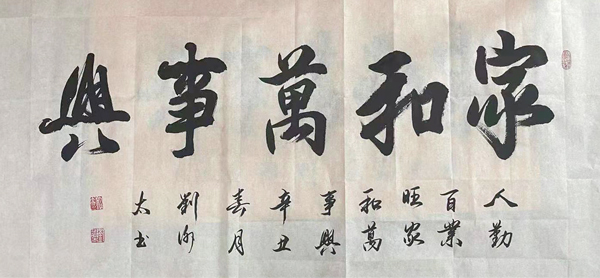 家和萬事興
人勤
百業
旺家
和萬
事興
辛丑
春月
劉
太书